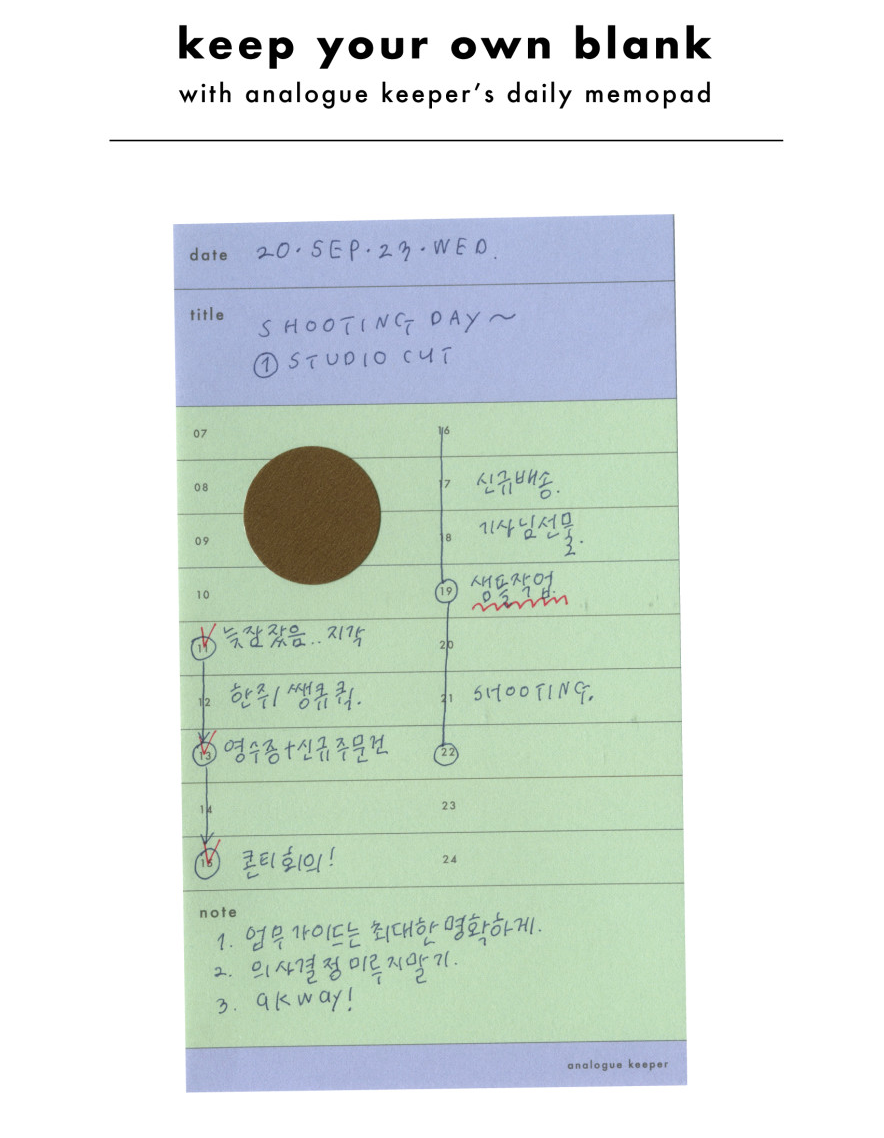 keep your own blank
with analogue keeper's daily memopad
date 20·SEP·23·WED.
title SHOOTING DAY~
① STUDIO CUT
07
08
09
10
11 늦잠잤음.. 지각
12 한주/ 쌩큐퀵.
13 영수증+신규주문건
14
15 콘티회의!
16
17 신규배송.
18 기사님선물.
19 샘플작업
20
21 SHOOTING.
22
23
24
note
1. 업무가이드는 최대한 명확하게.
2. 의사결정 미루지말기.
3. akway!
analogue keeper